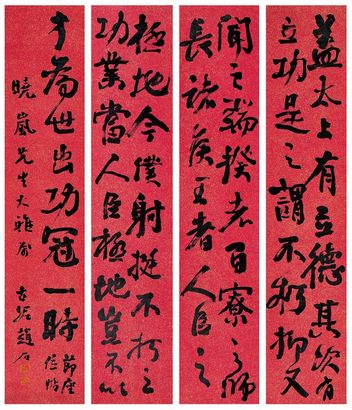 蓋太上有立德其次有
立功是之謂不朽抑又
聞之端揆者百寮之師
長諸侯王者人臣之
極地今僕射挺不朽之
功業當人臣極地豈不以
才為世出功冠一時
節座
位帖
曉嵐先生大雅屬
古泥趙石